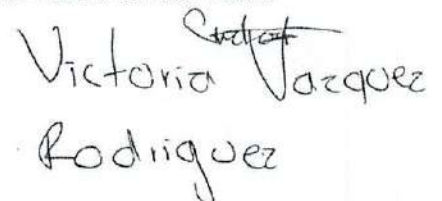 Victoria Vazquez
Rodriguez